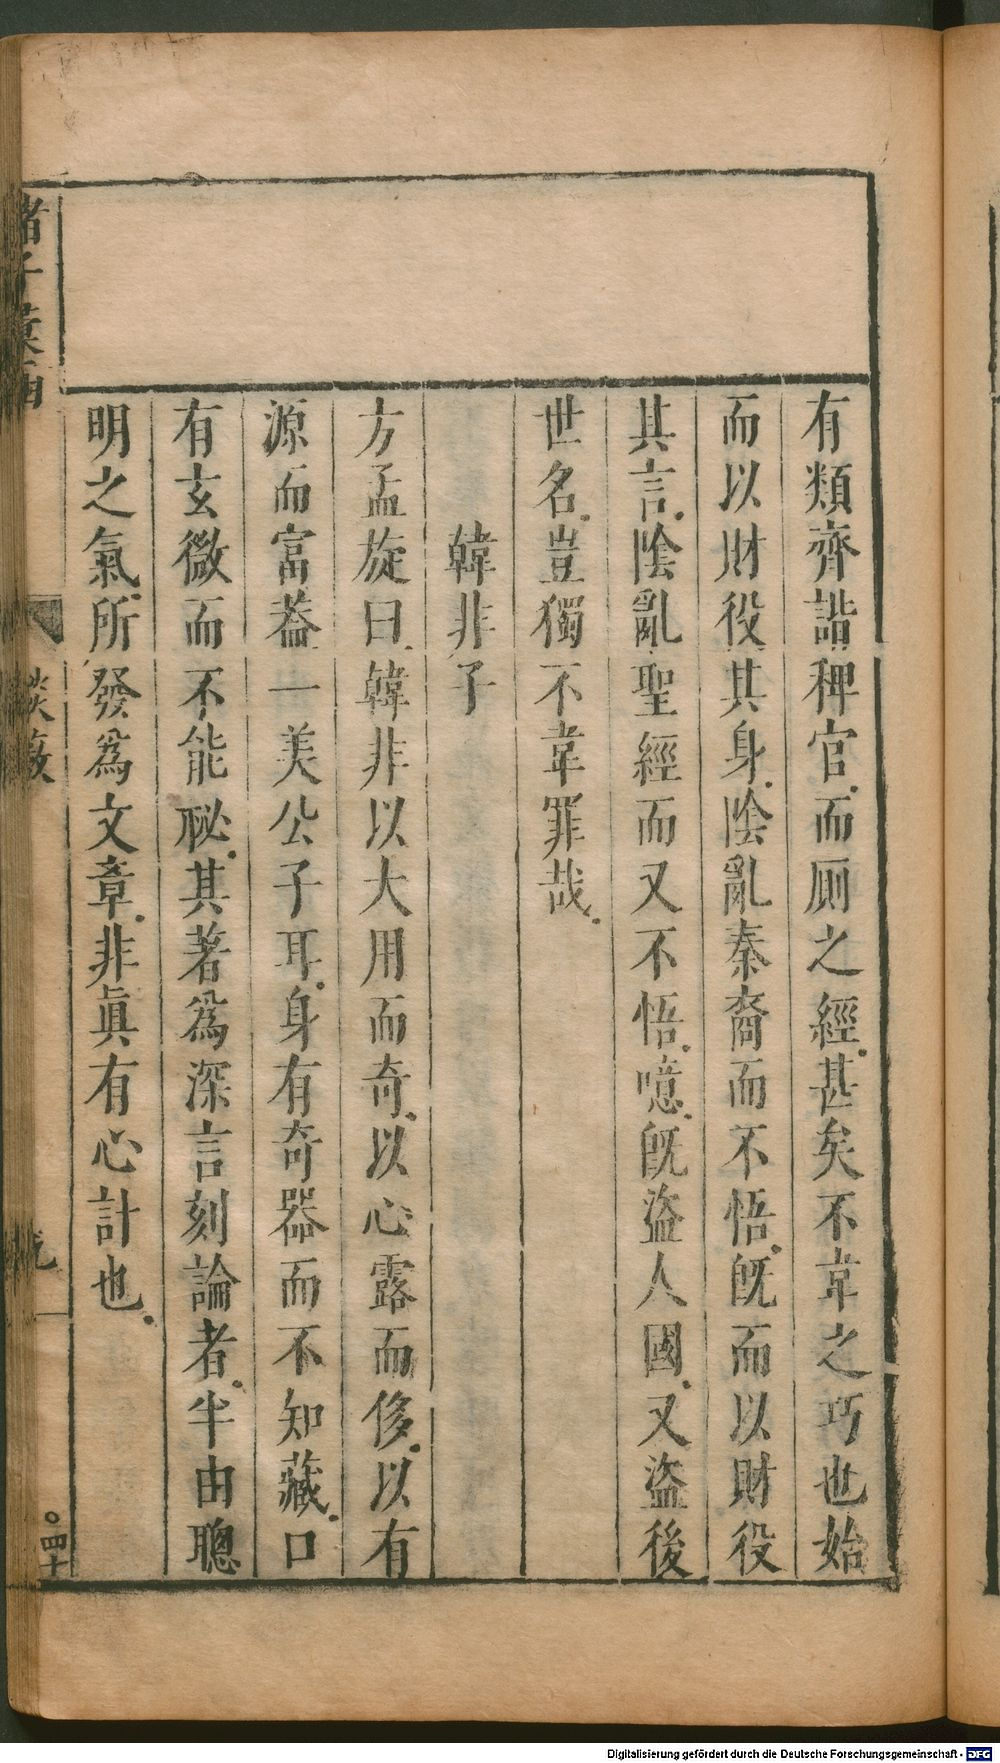 有類齊諧稗官而厠之經甚矣不韋之巧也始
而以財役其身陰亂秦裔而不悟旣而以財役
其言陰亂聖經而又不悟噫旣盜人國又盜後
世名豈獨不韋罪哉
韓非子
方孟旋曰韓非以大用而奇以心露而侈以有
源而富葢一美公子耳身有奇器而不知藏口
有玄微而不能祕其著爲深言刻論者半由聰
明之氣所發爲文章非眞有心計也
諸子彙函
談藪
四十
Digitalisierung gefördert durch die Deutsche Forschungsgemeinschaft - DFG